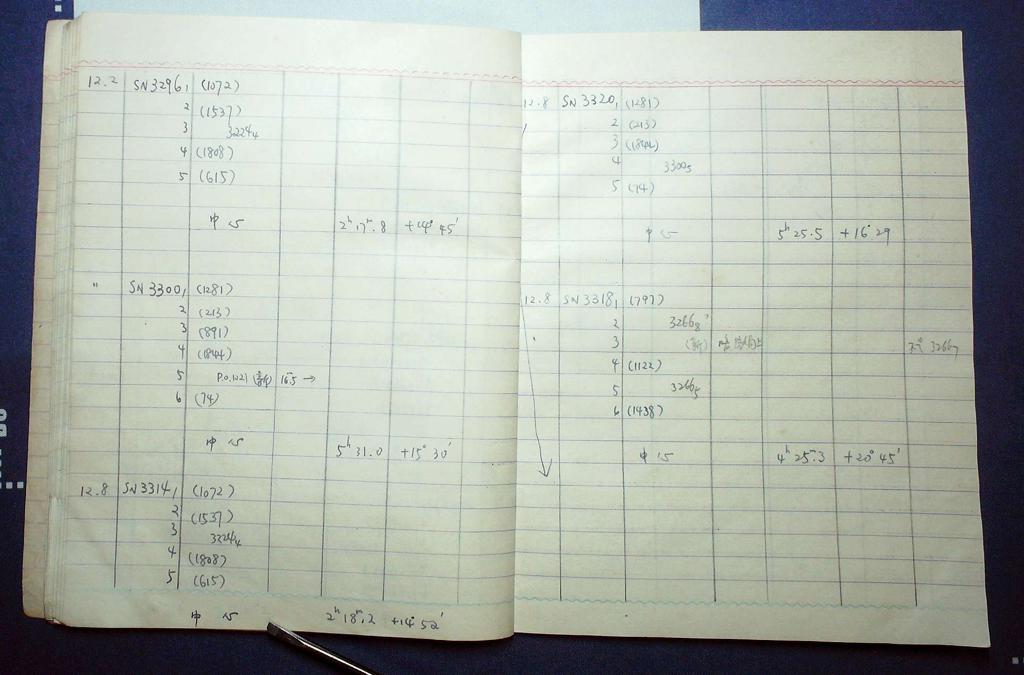 12.2 SN3296₁ (1072)
2 (1537)
3 3224₄
4 (1808)
5 (615)
中心 2ʰ17ᵐ.8 +14°45′
" SN3300₁ (1281)
2 (213)
3 (891)
4 (1844)
5 P.O.1021 (新) 16ᵐ.5 →
6 (74)
中心 5ʰ31.0 +15°30′
12.8 SN3314₁ (1072)
2 (1537)
3 3224₄
4 (1808)
5 (615)
中心 2ʰ18ᵐ.2 +14°52′
12.8 SN3320₁ (1281)
2 (213)
3 (1844)
4 3300₅
5 (74)
中心 5ʰ25.5 +16°29
12.8 SN3318₁ (797)
2 3266₈
3 (新) 3266₇
4 (1122)
5 3260₅
6 (1438)
中心 4ʰ25ᵐ.3 +20°45′